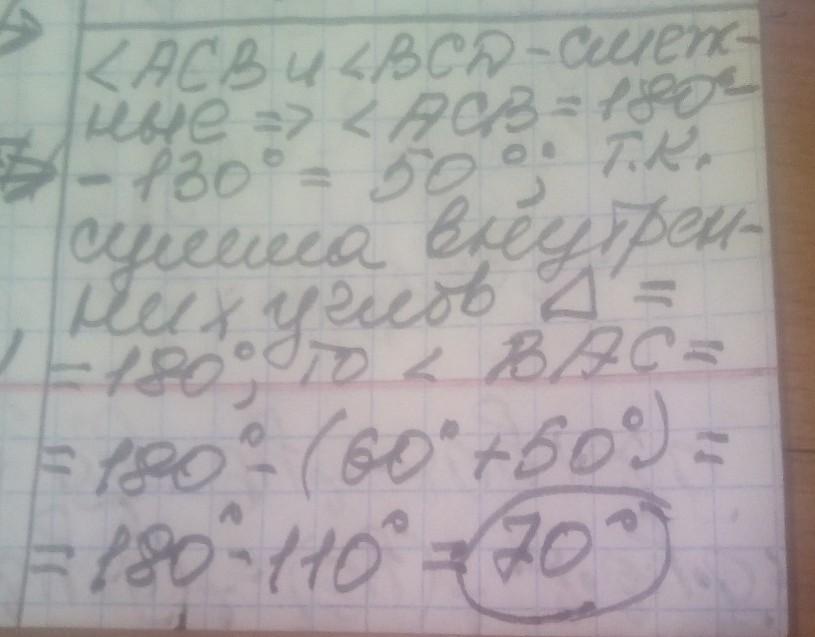 <ACB и <BCD - смеж-
ные => <ACB = 180° -
- 130° = 50°; т.к.
сумма внутрен-
них углов Δ =
= 180°, то < BAC =
= 180° - (60° + 50°) =
= 180° - 110° = 70°